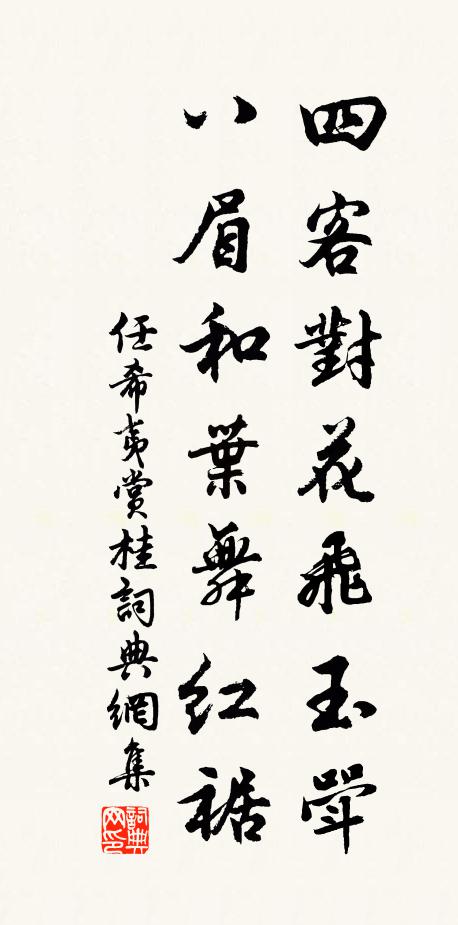 四客對花飛玉斝
八眉和葉舞紅裾
任希夷賞桂詞典網集
詞典网印